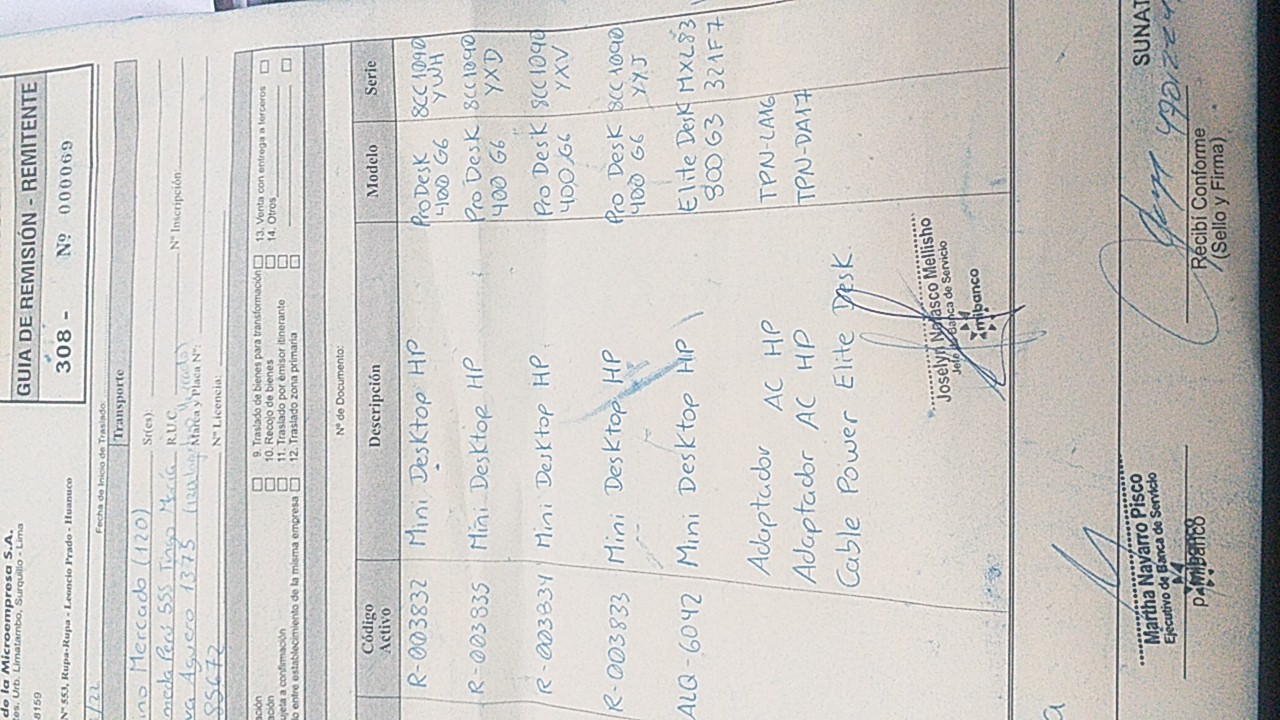 de la Microempresa S.A.
Urb. Limatambo, Surquillo - Lima
8159
Nº 553, Rupa-Rupa - Leoncio Prado - Huanuco
GUIA DE REMISIÓN - REMITENTE
308 - Nº 000069
Fecha de Inicio de Traslado:
Transporte
Mercado (120)
Sr(es):
555 Tingo María
R.U.C.
Nº Inscripción
Aguero 1373
Marca y Placa Nº:
Nº Licencia:
9. Traslado de bienes para transformación
10. Recojo de bienes
11. Traslado por emisor itinerante
12. Traslado zona primaria
13. Venta con entrega a terceros
14. Otros
ujeta a confirmación
o entre establecimiento de la misma empresa
Nº de Documento:
Código Activo Descripción Modelo Serie
R-003832 Mini Desktop HP ProDesk 400 G6 8CC1090 YWH
R-003835 Mini Desktop HP Pro Desk 400 G6 8CC1090 YXD
R-003834 Mini Desktop HP Pro Desk 400 G6 8CC1090 YXV
R-003833 Mini Desktop HP Pro Desk 400 G6 8CC1090
ALQ-6042 Mini Desktop HP Elite Desk 800 G3 MXL83 321F7
Adaptador AC HP TPN-LA16
Adaptador AC HP TPN-DA17
Cable Power Elite Desk.
Joselyn Mellisho
Banca de Servicio
mibanco
Martha Navarro Pisco
Ejecutivo de Banca de Servicio
mibanco
Recibí Conforme
(Sello y Firma)
SUNAT